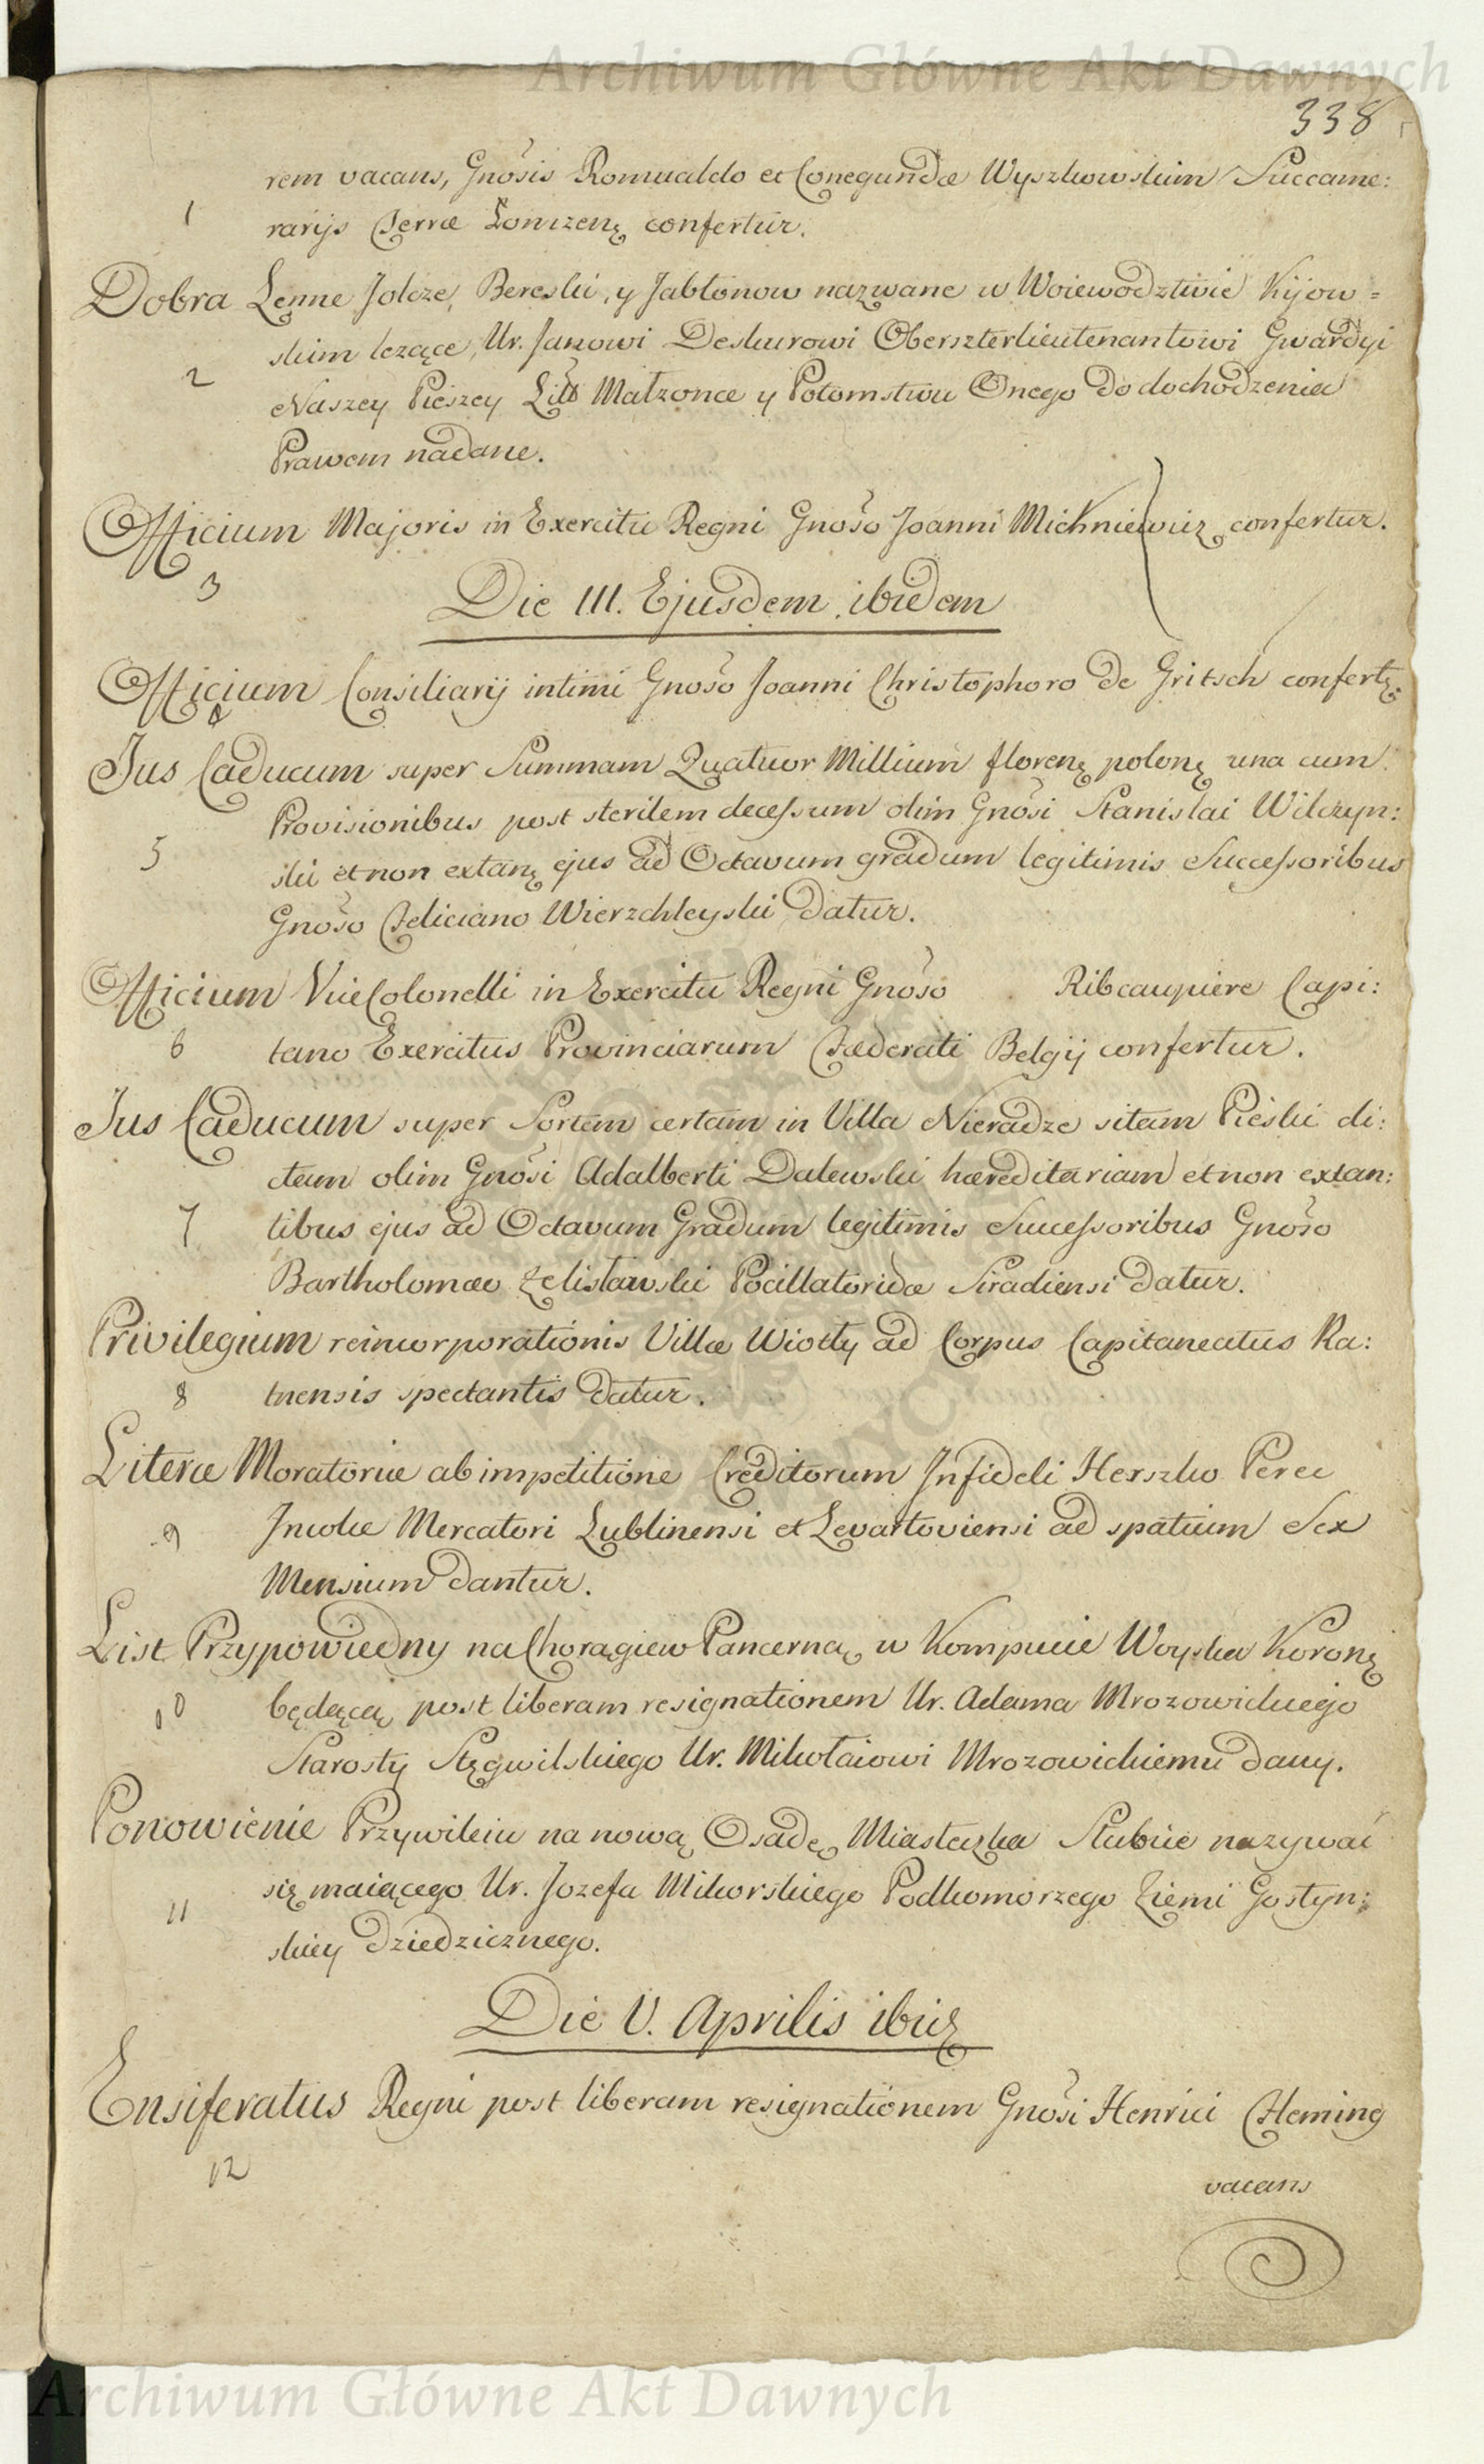 Archiwum Główne Akt Dawnych
338
rem vacans, Gnosis Romualdo et Conegundæ Wyszkowskim Succame:
1 rarijs Terræ Łomzenę confertur.
Dobra Lenne Jolcze, Bereski, y Jabłonow nazwane w Woiewodztwie Kijow=
skim lezące, Ur. Janowi Deskurowi Oberszterlieutenantowi Gwardyi
2 Naszey Pieszey Lit Małzonce y Potomstwu Onego do dochodzenia
Prawem nadane.
Officium Majoris in Exercitu Regni Gnoso Joanni Michniewicz confertur.
3
Die III. Ejusdem ibidem
Officium Consiliarij intimi Gnoso Joanni Christophoro de Gritsch confertę.
4
Jus Caducum super Summam Quatuor Millium florenę polonę una cum
Provisionibus post sterilem decessum olim Gnosi Stanislai Wilczyn:
5 ski et non extanę ejus ad Octavum gradum legitimis Successoribus
Gnoso Feliciano Wierzchleyski datur.
Officium ViceColonelli in Exercitu Regni Gnoso Ribeaupiere Capi:
6 tano Exercitus Provinciarum Fæderati Belgij confertur.
Jus Caducum super Sortem certam in Villa Nieradze sitam Pieski di:
ctam olim Gnosi Adalberti Dalewski hæreditariam et non extan:
7 tibus ejus ad Octavum Gradum legitimis Successoribus Gnoso
Bartholomæo Zelisławski Pocillatoridæ Siradiensi datur.
Privilegium reincorporationis Villæ Wiotly ad Corpus Capitaneatus Ra:
8 tnensis spectantis datur.
Literæ Moratoriæ ab impetitione Creditorum Infideli Herszko Perec
9 Incolæ Mercatori Lublinensi et Levartoviensi ad spatium Sex
Mensium dantur.
List Przypowiedny na Chorągiew Pancerną, w Kompucie Woyska Koronę
10 będącą, post liberam resignationem Ur. Adama Mrozowickiego
Starosty Stęgwilskiego Ur. Mikołaiowi Mrozowickiemu dany.
Ponowienie Przywileiu na nową Osadę Miasteczka Słubice nazywać
11 się maiącego Ur. Jozefa Mikorskiego Podkomorzego Ziemi Gostyn:
skiey dziedzicznego.
Die V. Aprilis ibię
Ensiferatus Regni post liberam resignationem Gnosi Henrici Fleming
12
vacans
Archiwum Główne Akt Dawnych